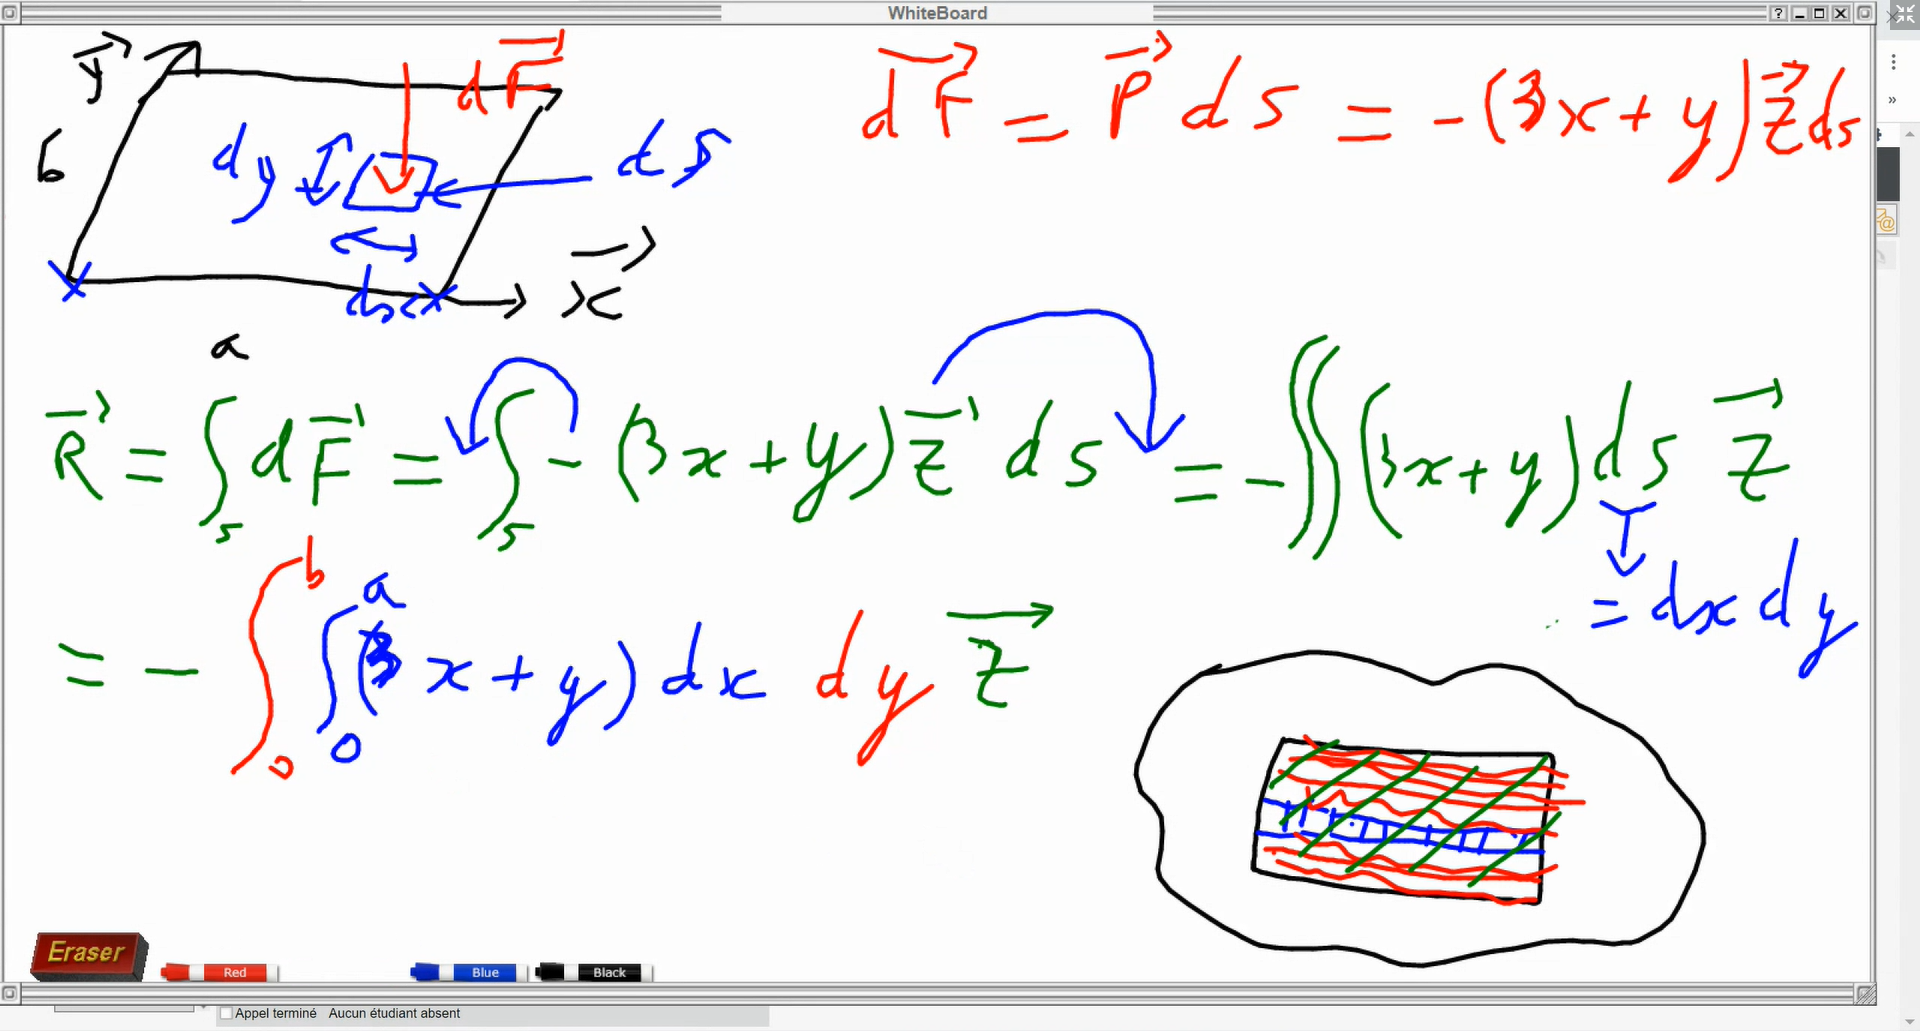 WhiteBoard
y→ dF→ dF→ = P→ ds = -(3x+y)z→ds
b dy ds
dx x→
a
R→ = ∫_S dF→ = ∫_S -(3x+y)z→ ds = -∬(3x+y)ds z→
= dx dy
= - ∫_0^b ∫_0^a (3x+y)dx dy z→
Eraser Red Blue Black
Appel terminé Aucun étudiant absent